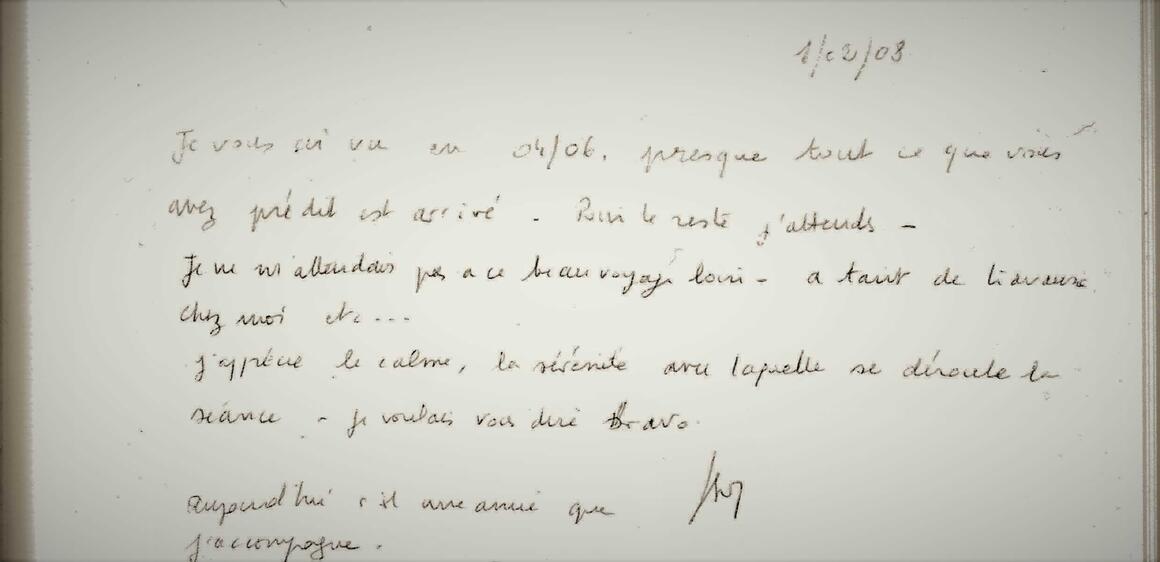 1/02/08
Je vous ai vu en 04/06. presque tout ce que vous
avez prédit est arrivé - Pour le reste j'attends -
Je ne m'attendais pas a ce beau voyage loin - a tant de travaux
chez moi etc...
j'apprécie le calme, la sérénité avec laquelle se déroule la
séance - je voulais vous dire Bravo.
Aujourd'hui c'est une amie que
j'accompagne.